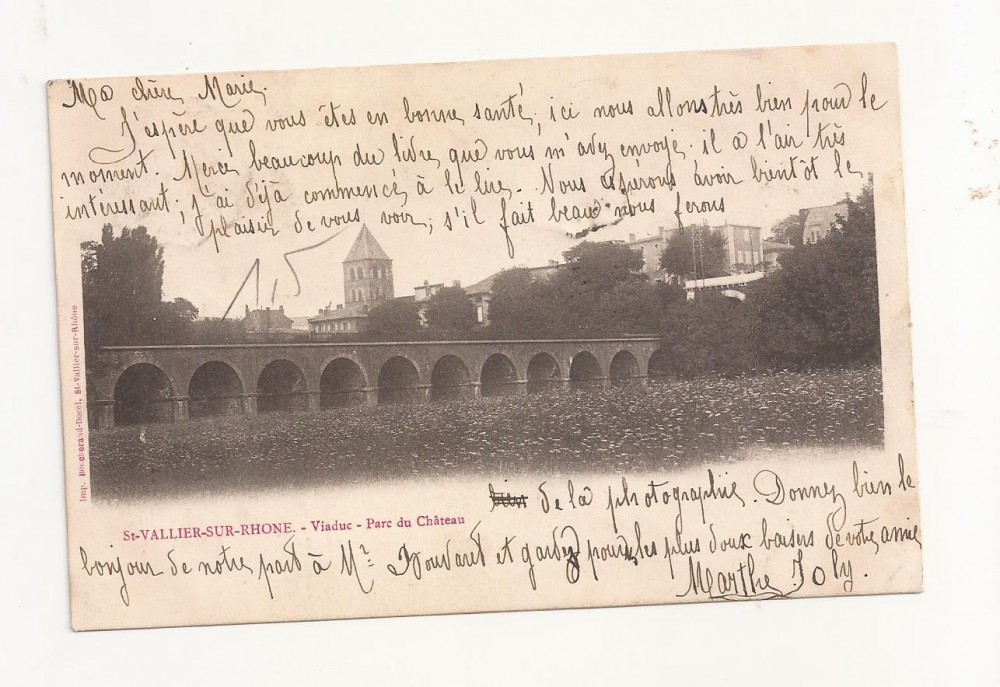 Ma chère Marie.
J'espère que vous êtes en bonne santé, ici nous allons très bien pour le
moment. Merci beaucoup du livre que vous m'avez envoyé. il a l'air très
intéressant; j'ai déjà commencé à le lire. Nous espérons avoir bientôt le
plaisir de vous voir; s'il fait beau nous ferons
de la photographie. Donnez bien le
St-VALLIER-SUR-RHONE. - Viaduc - Parc du Château
bonjour de notre part à Mr. et gardez pour les plus doux baisers de votre amie
Marthe Joly.
Imp. St-Vallier-sur-Rhône